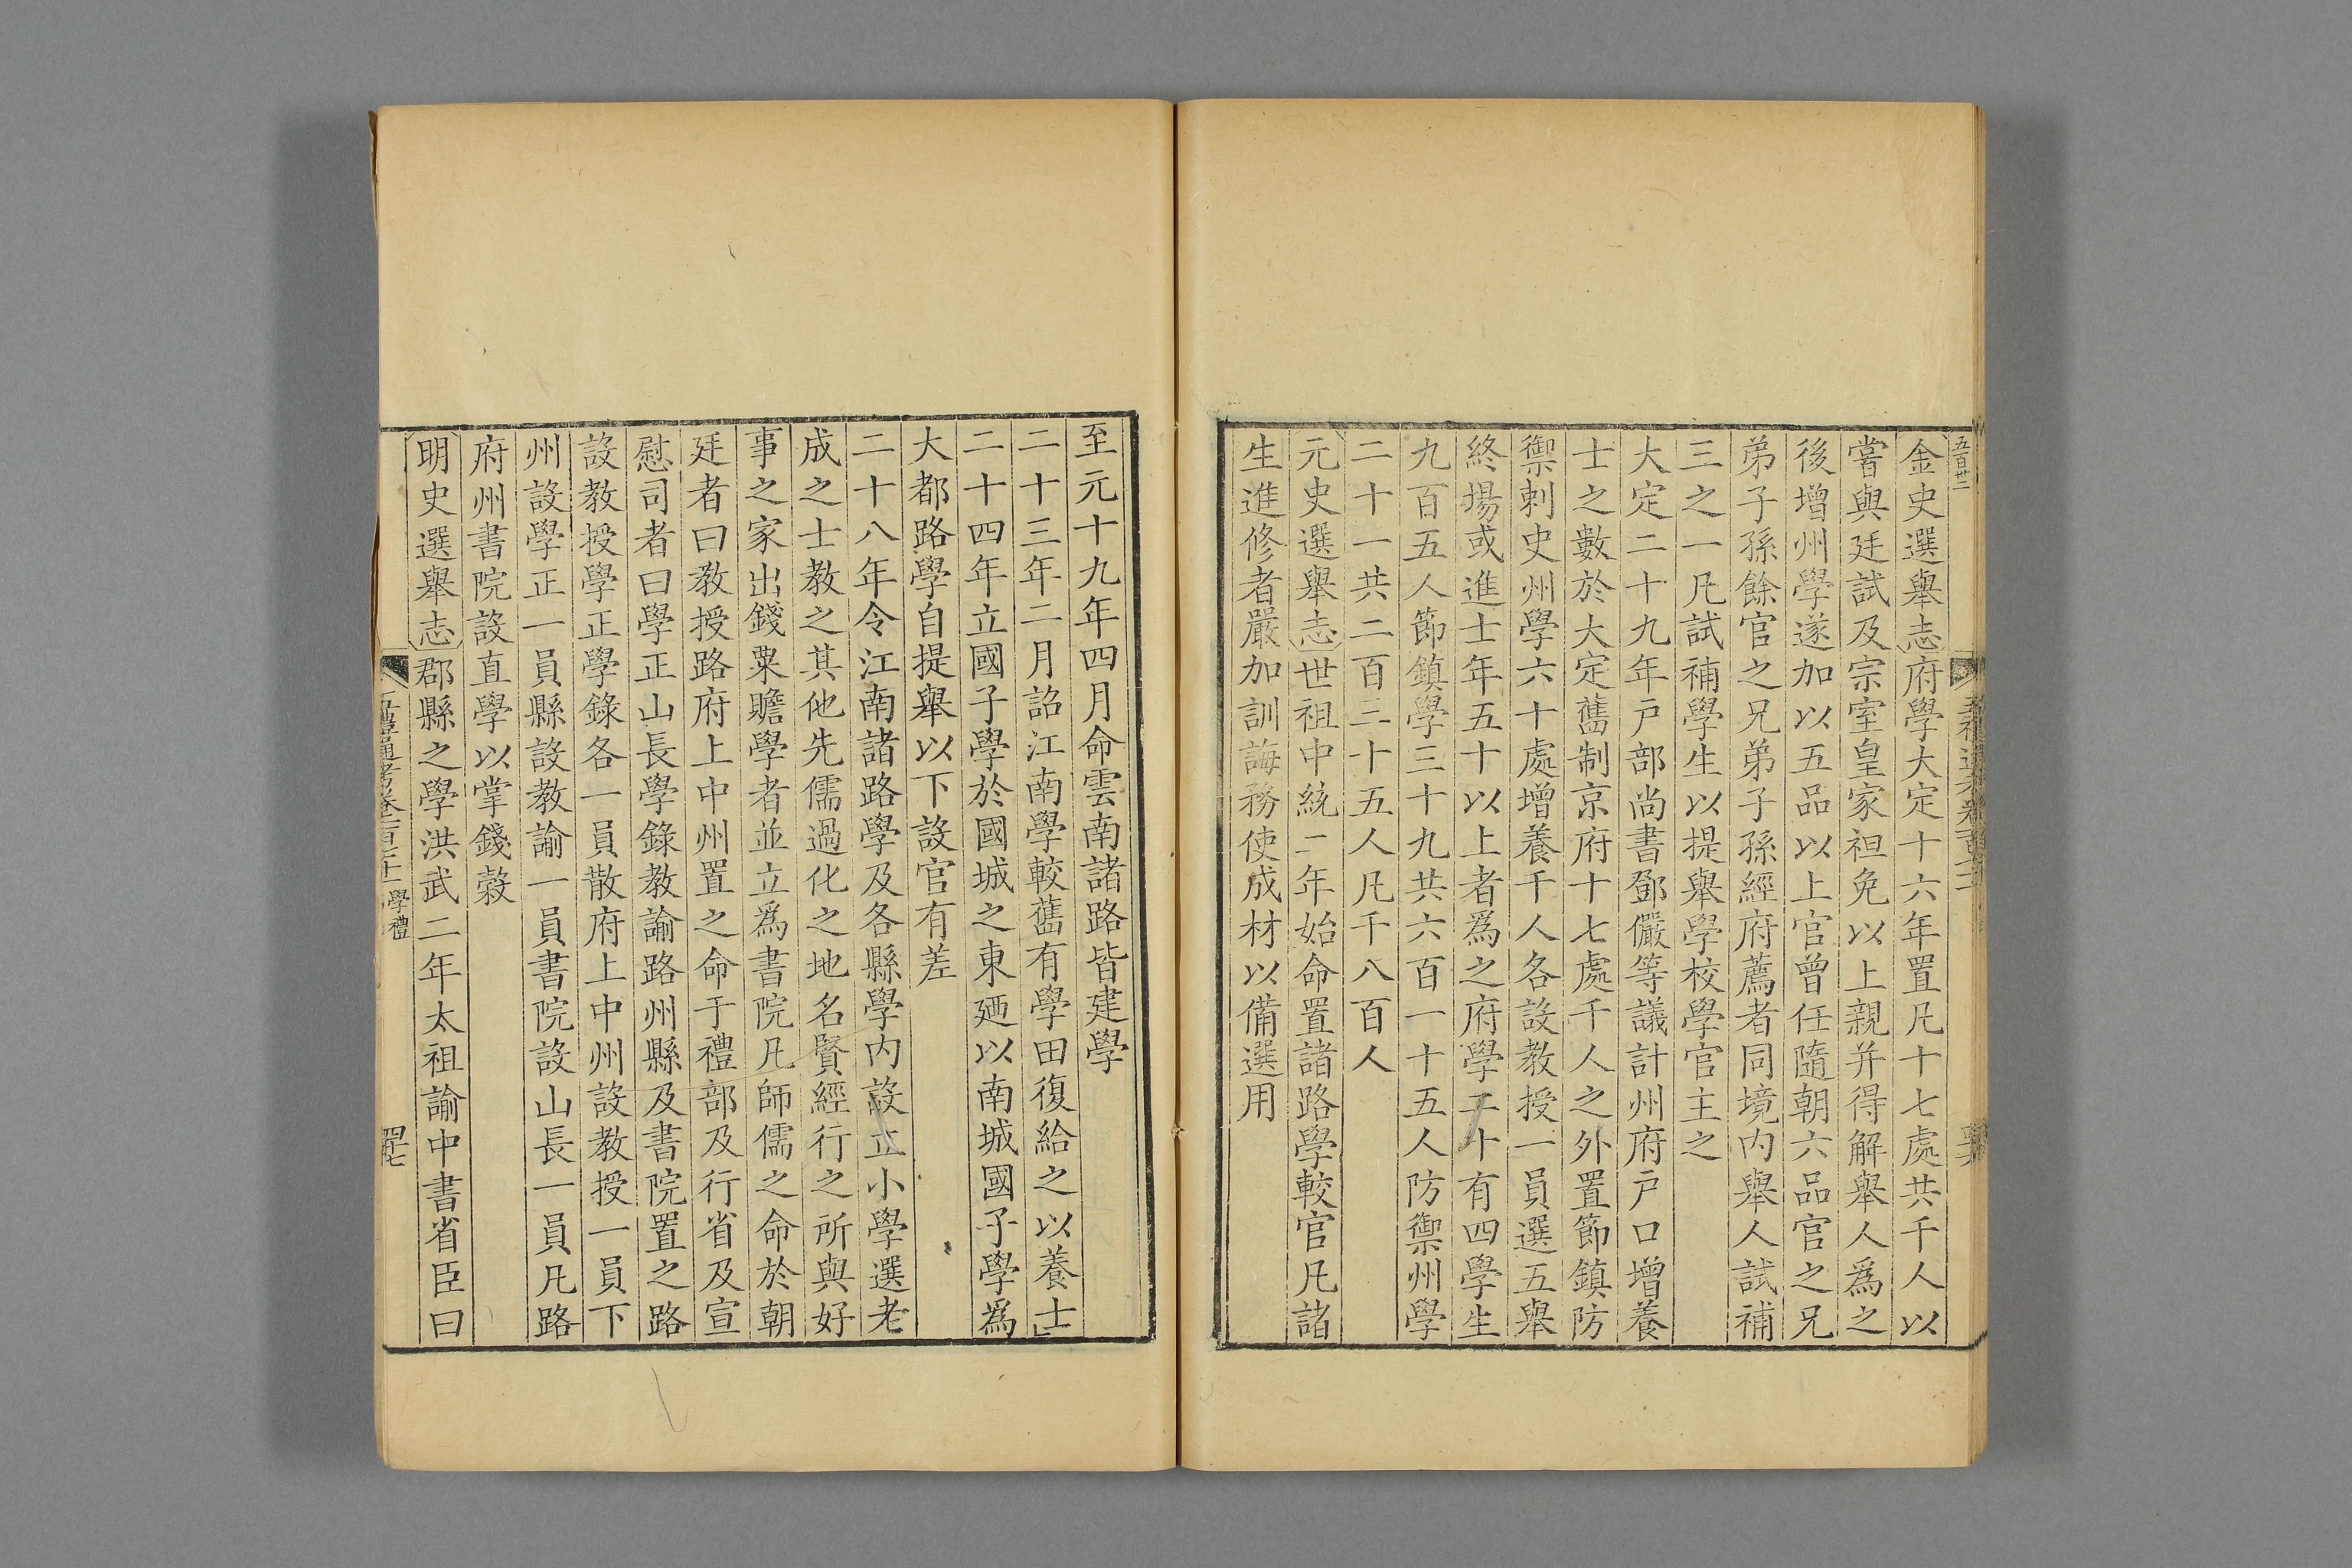 五百卅二
金史選舉志府學大定十六年置凡十七處共千人以
嘗與廷試及宗室皇家袒免以上親并得解舉人爲之
後增州學遂加以五品以上官曾任隨朝六品官之兄
弟子孫餘官之兄弟子孫經府薦者同境內舉人試補
三之一凡試補學生以提舉學校學官主之
大定二十九年戸部尚書鄧儼等議計州府戸口增養
士之數於大定舊制京府十七處千人之外置節鎮防
禦刺史州學六十處增養千人各設教授一員選五舉
終場或進士年五十以上者爲之府學二十有四學生
九百五人節鎮學三十九共六百一十五人防禦州學
二十一共二百三十五人凡千八百人
元史選舉志世祖中統二年始命置諸路學較官凡諸
生進修者嚴加訓誨務使成材以備選用
至元十九年四月命雲南諸路皆建學
二十三年二月詔江南學較舊有學田復給之以養士
二十四年立國子學於國城之東廼以南城國子學爲
大都路學自提舉以下設官有差
二十八年令江南諸路學及各縣學内設立小學選老
成之士教之其他先儒過化之地名賢經行之所與好
事之家出錢粟贍學者並立爲書院凡師儒之命於朝
廷者曰教授路府上中州置之命于禮部及行省及宣
慰司者曰學正山長學錄教諭路州縣及書院置之路
設教授學正學錄各一員散府上中州設教授一員下
州設學正一員縣設教諭一員書院設山長一員凡路
府州書院設直學以掌錢穀
明史選舉志郡縣之學洪武二年太祖諭中書省臣曰
學禮